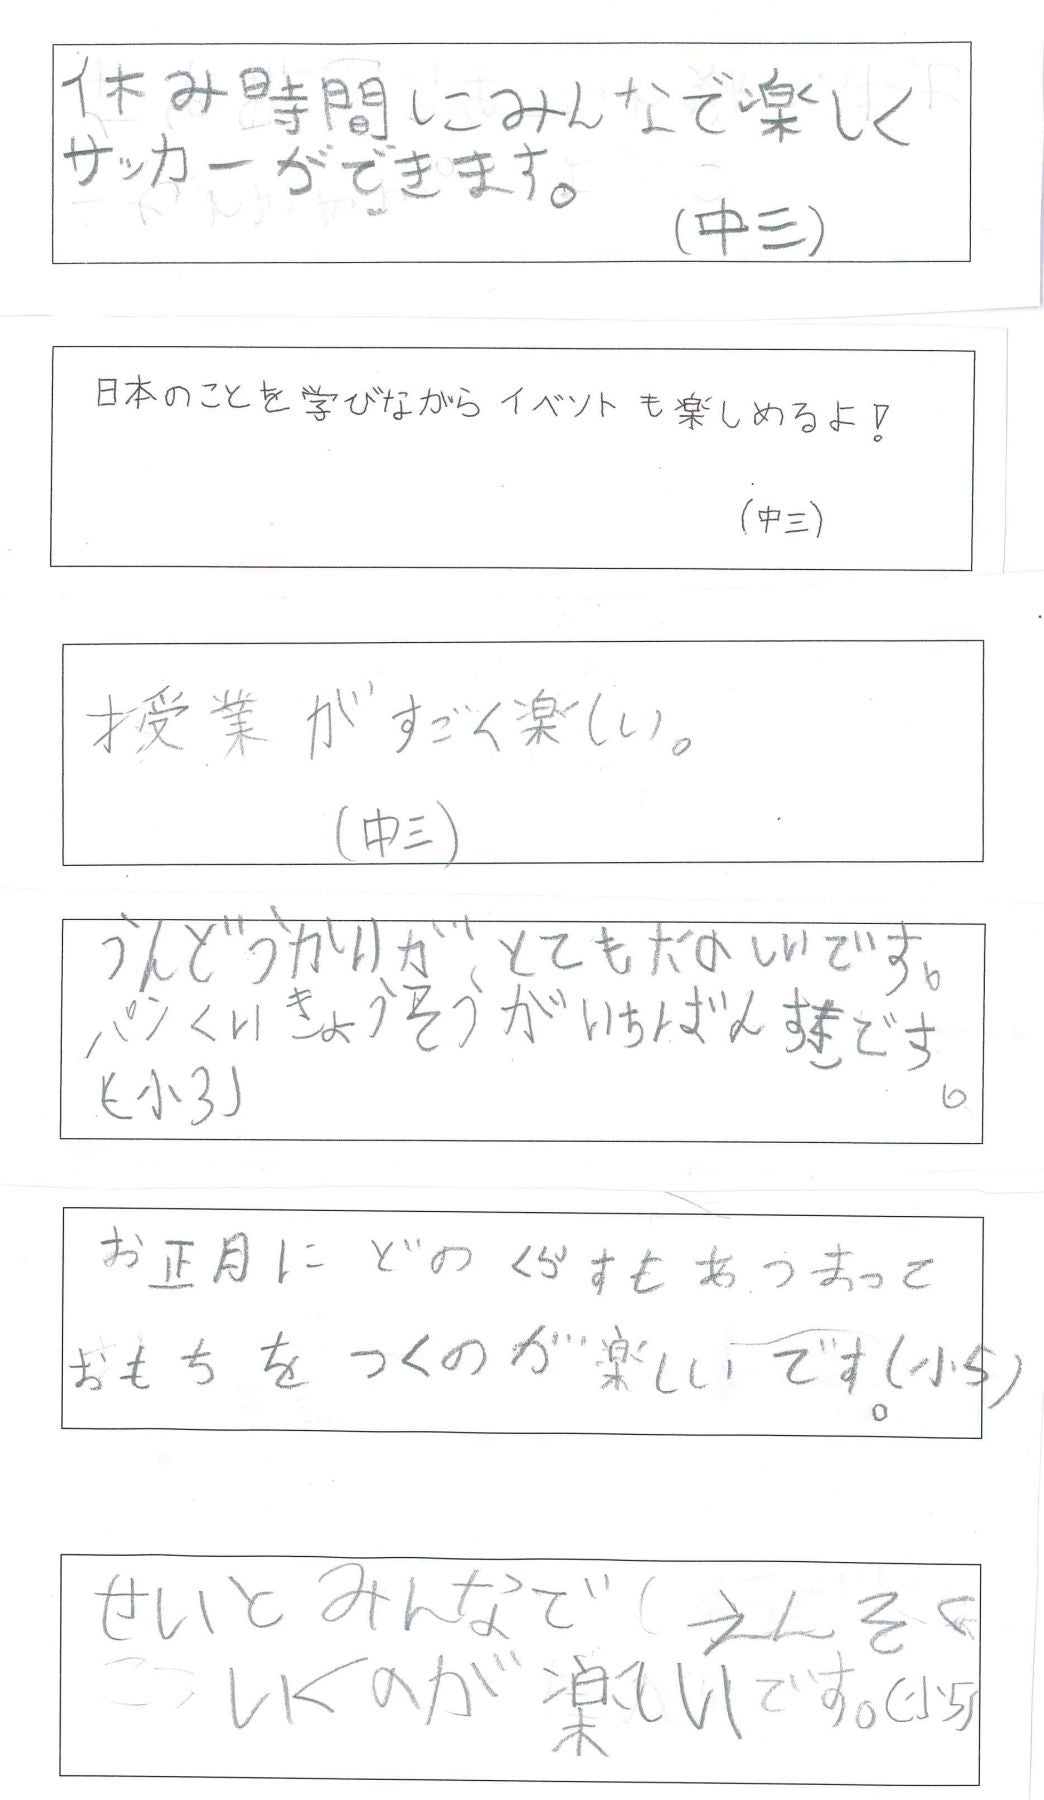 休み時間にみんなで楽しく
サッカーができます。
(中三)
日本のことを学びながらイベントも楽しめるよ!
(中三)
授業がすごく楽しい。
(中三)
うんどうかいがとてもたのしいです。
パンくいきょうそうがいちばんすきです。
(小3)
お正月にどのくらすもあつまって
おもちをつくのが楽しいです。(小5)
せいとみんなでえんそく
にいくのが楽しいです。(小5)